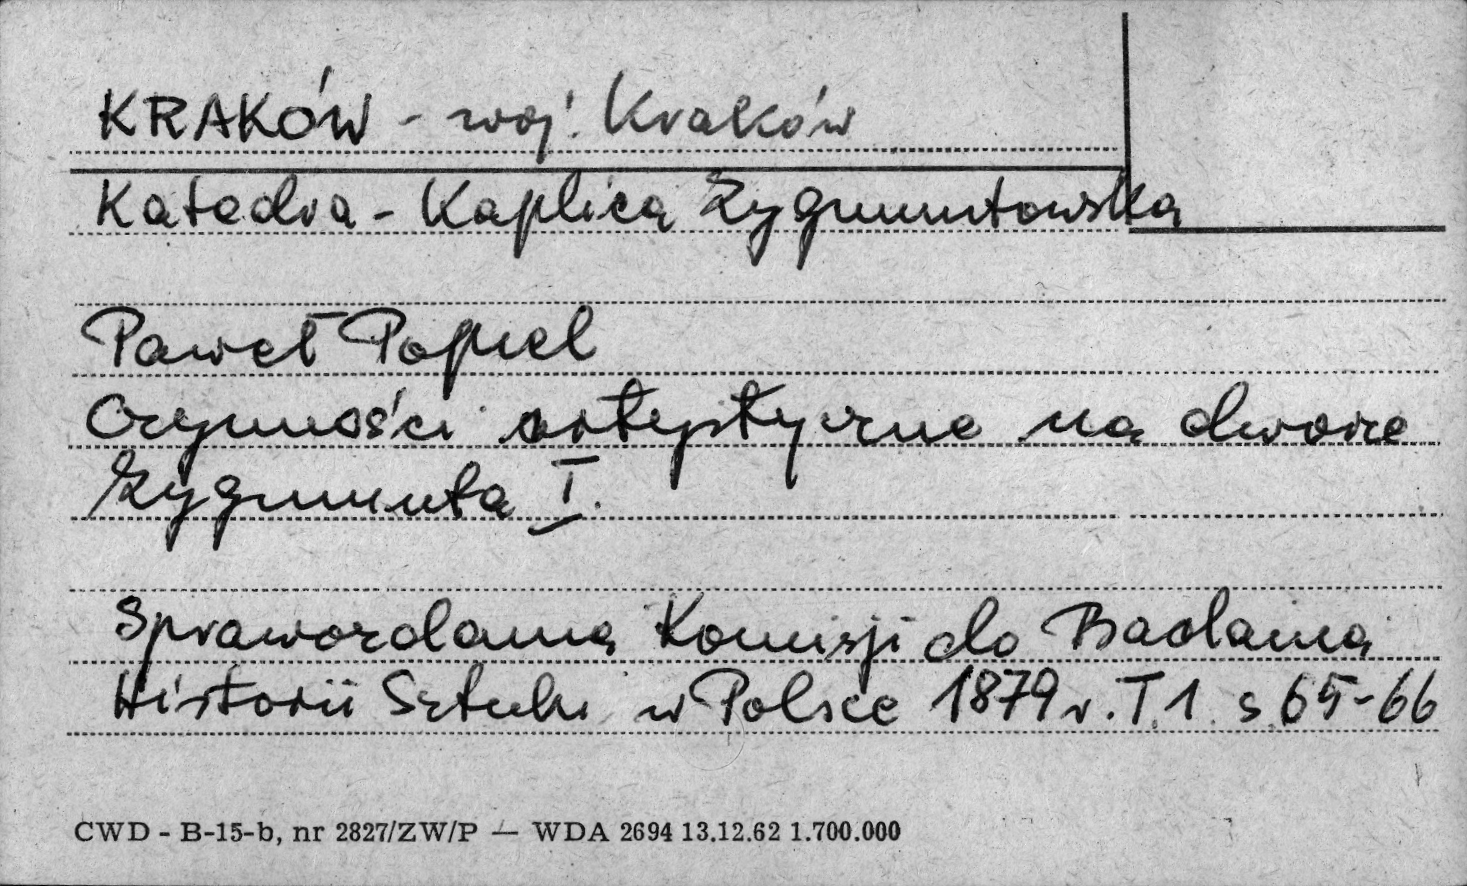 KRAKÓW - woj. Kraków
Katedra - Kaplica Zygmuntowska
Paweł Popiel
Czynności artystyczne na dworze
Zygmunta I.
Sprawozdania Komisji do Badania
Historii Sztuki w Polsce 1879 r. T. 1. s 65-66
CWD - B-15-b, nr 2827/ZW/P — WDA 2694 13.12.62 1.700.000